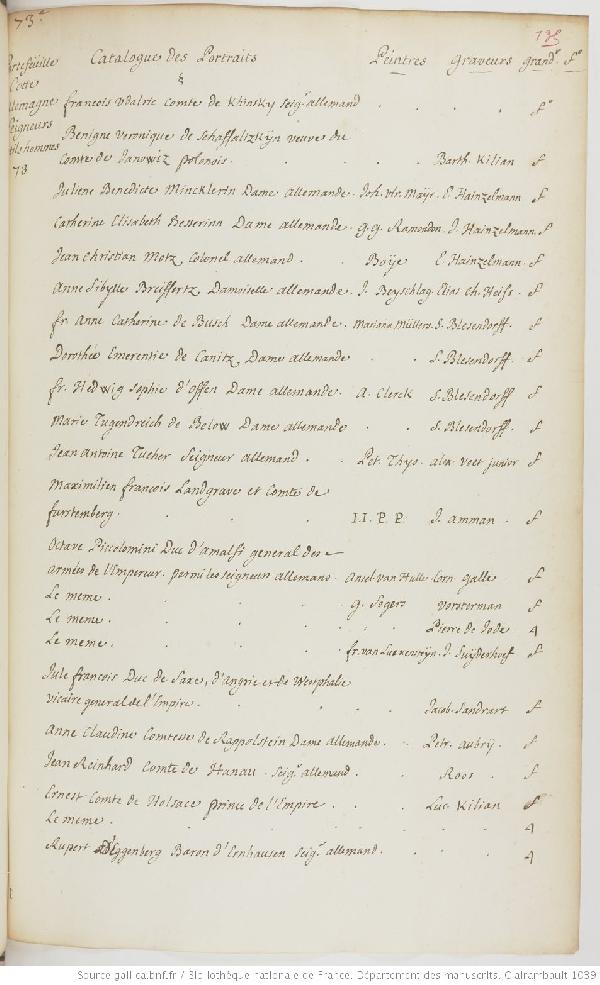 73.e
135
Portefeuille Catalogue des Portraits Peintres Graveurs grand.r f.o
Cotte
allemagne
Seigneurs
gentilshommes
73
françois Vdalric Comte de Khinsky seig.r allemand . . . f.o
Benigne Veronique de Schaffaltzkijn veuve du
Comte de Janowitz polonois . . . Barth. Kilian f
Juliene Benedicte Mincklerin Dame allemande . Joh. Ulr. Mayr . E. Hainzelmann f
Catherine Elisabeth Besserinn Dame allemande . g.g. Ramondon . J. Hainzelmann . f
Jean Christian Motz, Colonel allemand . . Boÿe E. Hainzelmann . f
Anne Sibylle Breiffertz, Damoiselle allemande . J. Beyschlag . Elias Ch. Heiss . f
fr. Anne Catherine de Busch Dame allemande . Mariana Müllers . S. Blesendorff . f
Dorothée Emerentie de Canitz, Dame allemande . . S. Blesendorff . f
fr. Hedwig Sophie d'Offen Dame allemande . A. Clerck S. Blesendorff f
Marie Tugendreich de Below Dame allemande . . S. Blesendorff . f
Jean Antoine Tucher Seigneur allemand . Pet. Thyo . alex. Veet junior f
Maximilien françois Landgrave et Comte de
furstemberg . . . I.I.P.P. J. amman . f
Octave Piccolomini Duc d'amalfi general des
armées de l'Empereur . parmi les seigneurs allemans . Ansel. van Hulle Corn galle f
Le meme . . . g. Segers Vorsterman f
Le meme . . . Pierre de Jode 4
Le meme . . . fr. van Luxensteijn . J. Suÿderhoef f
Jule françois Duc de Saxe, d'angrie et de Westphalie
vicaire general de l'Empire . . . Jacob. Sandrart f
Anne Claudine Comtesse de Rappolstein Dame allemande . . Petr. aubrij . f
Jean Reinhard Comte de Hanau . seig.r allemand . . Roos . f
Ernest Comte de Holsace prince de l'Empire . . . Luc Kilian f
Le meme . . . 4
Rupert d'Eggenberg Baron d'Ernhausen seig.r allemand . . . 4
Source gallica.bnf.fr / Bibliothèque nationale de France. Département des manuscrits. Clairambault 1039